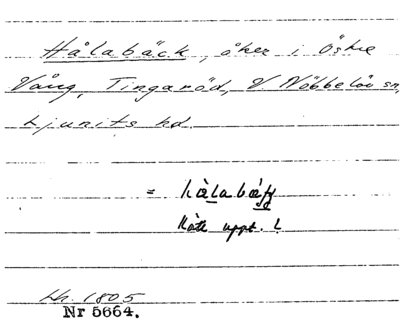 Hålabäck, åker i Östre
Vång, Tingaröd, V Nöbbelöv sn,
Ljunits hd
= hålabäƒƒ
uppt. !
Hr. 1805
Nr 5664.